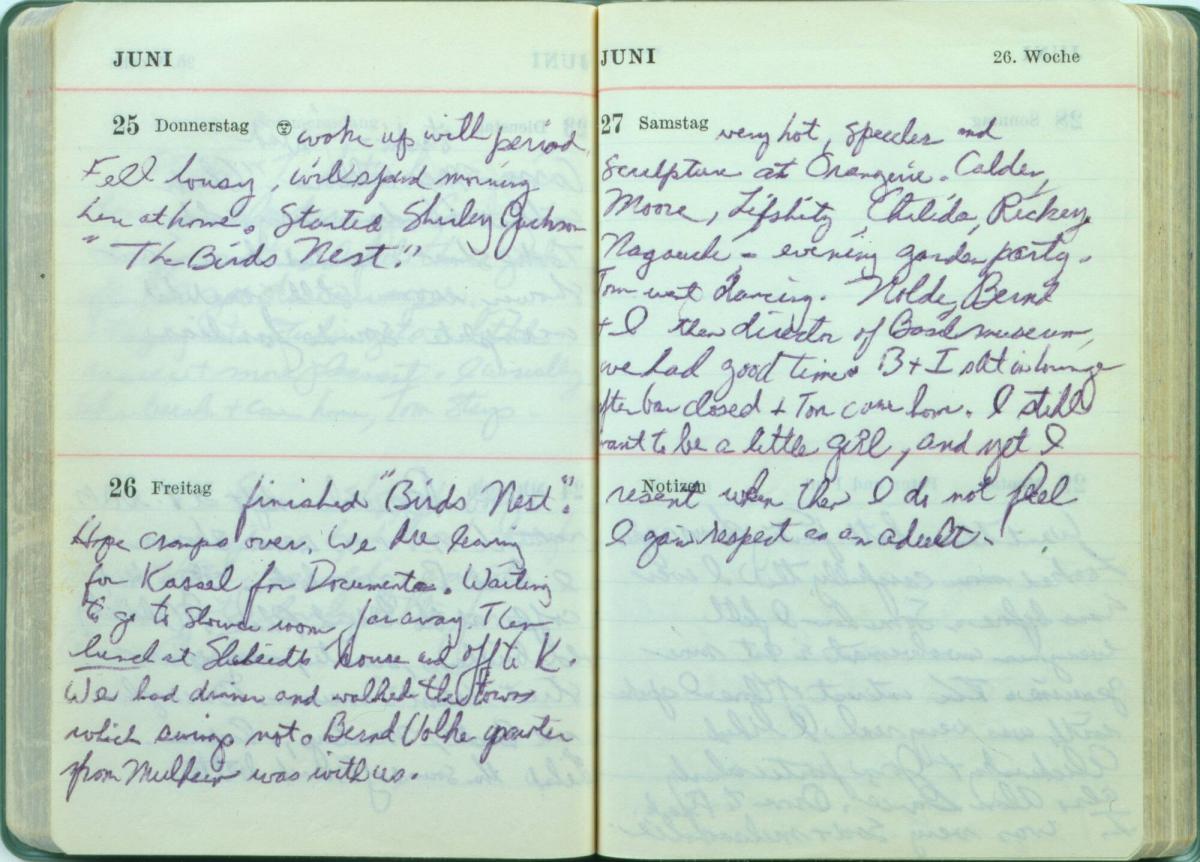 JUNI
25 Donnerstag woke up with period.
Fell lousy, will spend morning
here at home. Started Shirley Jackson
"The Birds Nest."
26 Freitag finished "Birds Nest".
Hope cramps over. We are leaving
for Kassel for Documenta. Waiting
to go to shower room, far away. Then
lunch at house and off to K.
We had dinner and walked the town
which swings not. Bernd Volke
from Mulheim was with us.
JUNI 26. Woche
27 Samstag very hot, speeches and
sculpture at Orangerie. Calder,
Moore, Lifshitz, Chilida, Rickey,
Nagouchi - evening garden party.
Tom went dancing. Nolde, Bernd
+ I then director of Basel museum,
we had good time. B + I sat in lounge
after bar closed + Tom came home. I still
want to be a little girl, and yet I
Notizen
resent when then I do not feel
I gain respect as an adult.